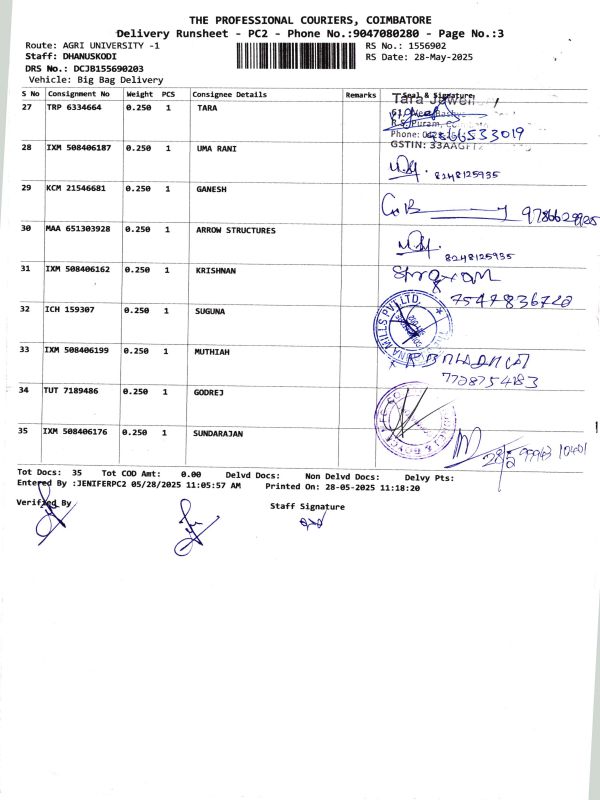 THE PROFESSIONAL COURIERS, COIMBATORE
Delivery Runsheet - PC2 - Phone No.:9047080280 - Page No.:3
Route: AGRI UNIVERSITY -1 RS No.: 1556902
Staff: DHANUSKODI RS Date: 28-May-2025
DRS No.: DCJB155690203
Vehicle: Big Bag Delivery
S No Consignment No Weight PCS Consignee Details Remarks Seal & Signature
27 TRP 6334664 0.250 1 TARA
Tara
R.S. Puram,
Phone: 533019
GSTIN: 33AAGF
28 IXM 508406187 0.250 1 UMA RANI
8248125935
29 KCM 21546681 0.250 1 GANESH
9786629925
30 MAA 651303928 0.250 1 ARROW STRUCTURES
8248125935
31 IXM 508406162 0.250 1 KRISHNAN
7547836720
32 ICH 159307 0.250 1 SUGUNA
MILLS PVT LTD
33 IXM 508406199 0.250 1 MUTHIAH
7728754183
34 TUT 7189486 0.250 1 GODREJ
35 IXM 508406176 0.250 1 SUNDARAJAN
28/5 99943 10401
Tot Docs: 35 Tot COD Amt: 0.00 Delvd Docs: Non Delvd Docs: Delvy Pts:
Entered By :JENIFERPC2 05/28/2025 11:05:57 AM Printed On: 28-05-2025 11:18:20
Verified By Staff Signature